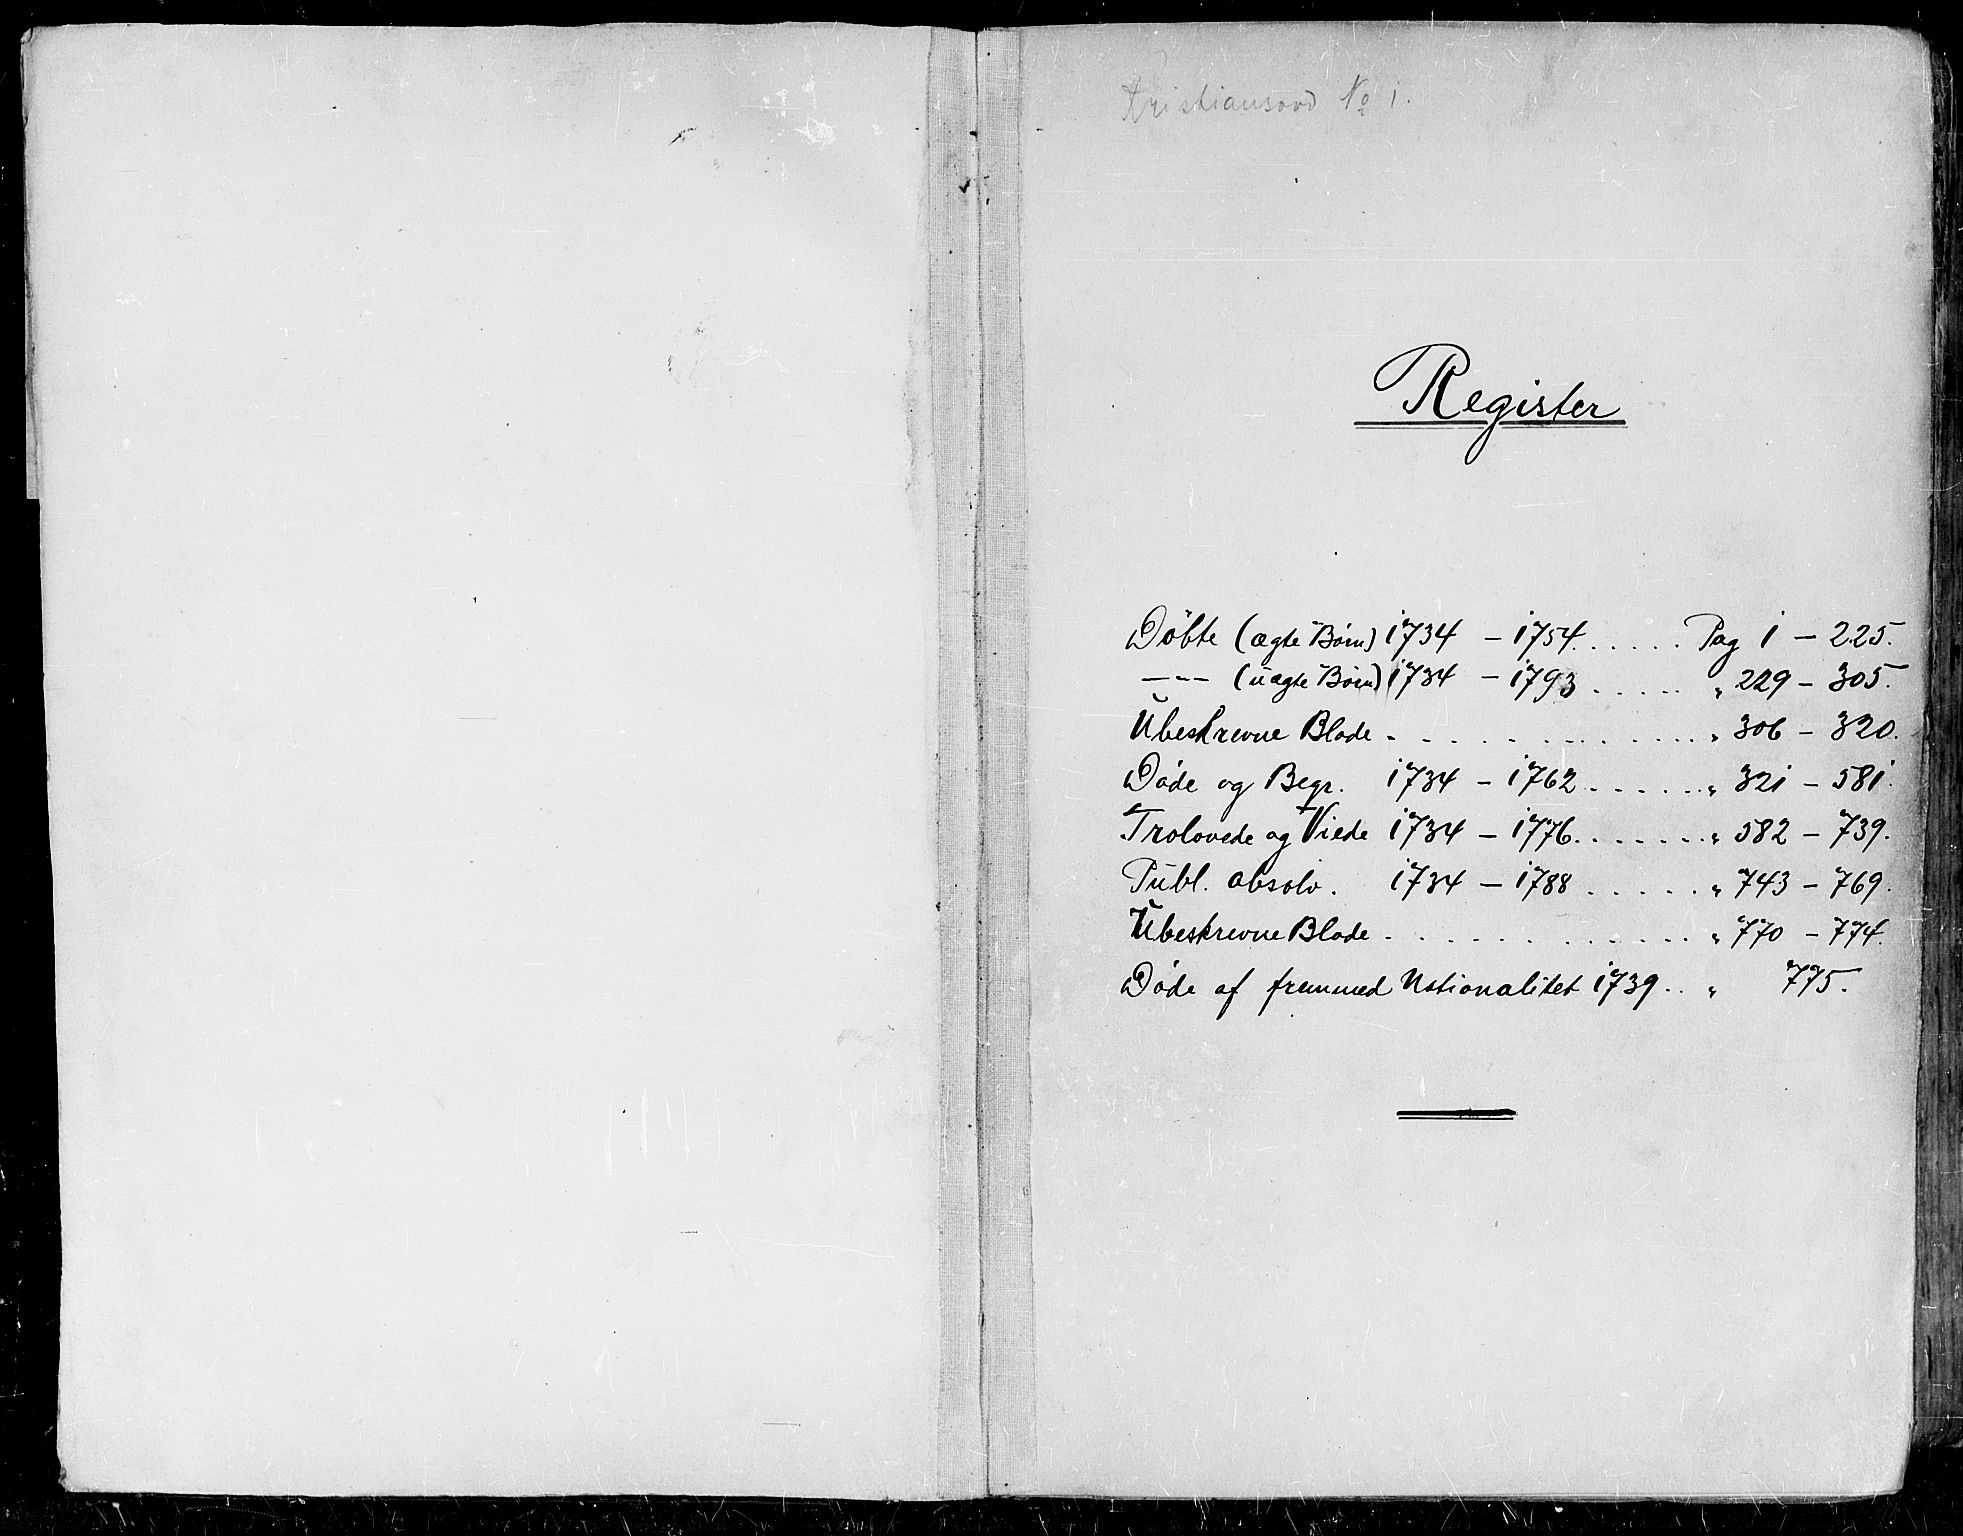 Kristianssand No 1.
Register
Döbte (ægte Börn) 1734 – 1754. . . . . . Pag 1 – 225.
—„— (uægte Börn) 1734 – 1793 . . . . . „ 229 – 305.
Ubeskrevne Blade . . . . . . . . . . . . . „ 306 – 320.
Döde og Begr. 1734 – 1762 . . . . . . . „ 321 – 581.
Trolovede og Viede 1734 – 1776. . . . . . . „ 582 – 739.
Publ. absolv. 1734 – 1788 . . . . . . „ 743 – 769.
Ubeskrevne Blade . . . . . . . . . . . . „ 770 – 774.
Döde af fremmed Nationalitet 1739 . . „ 775.